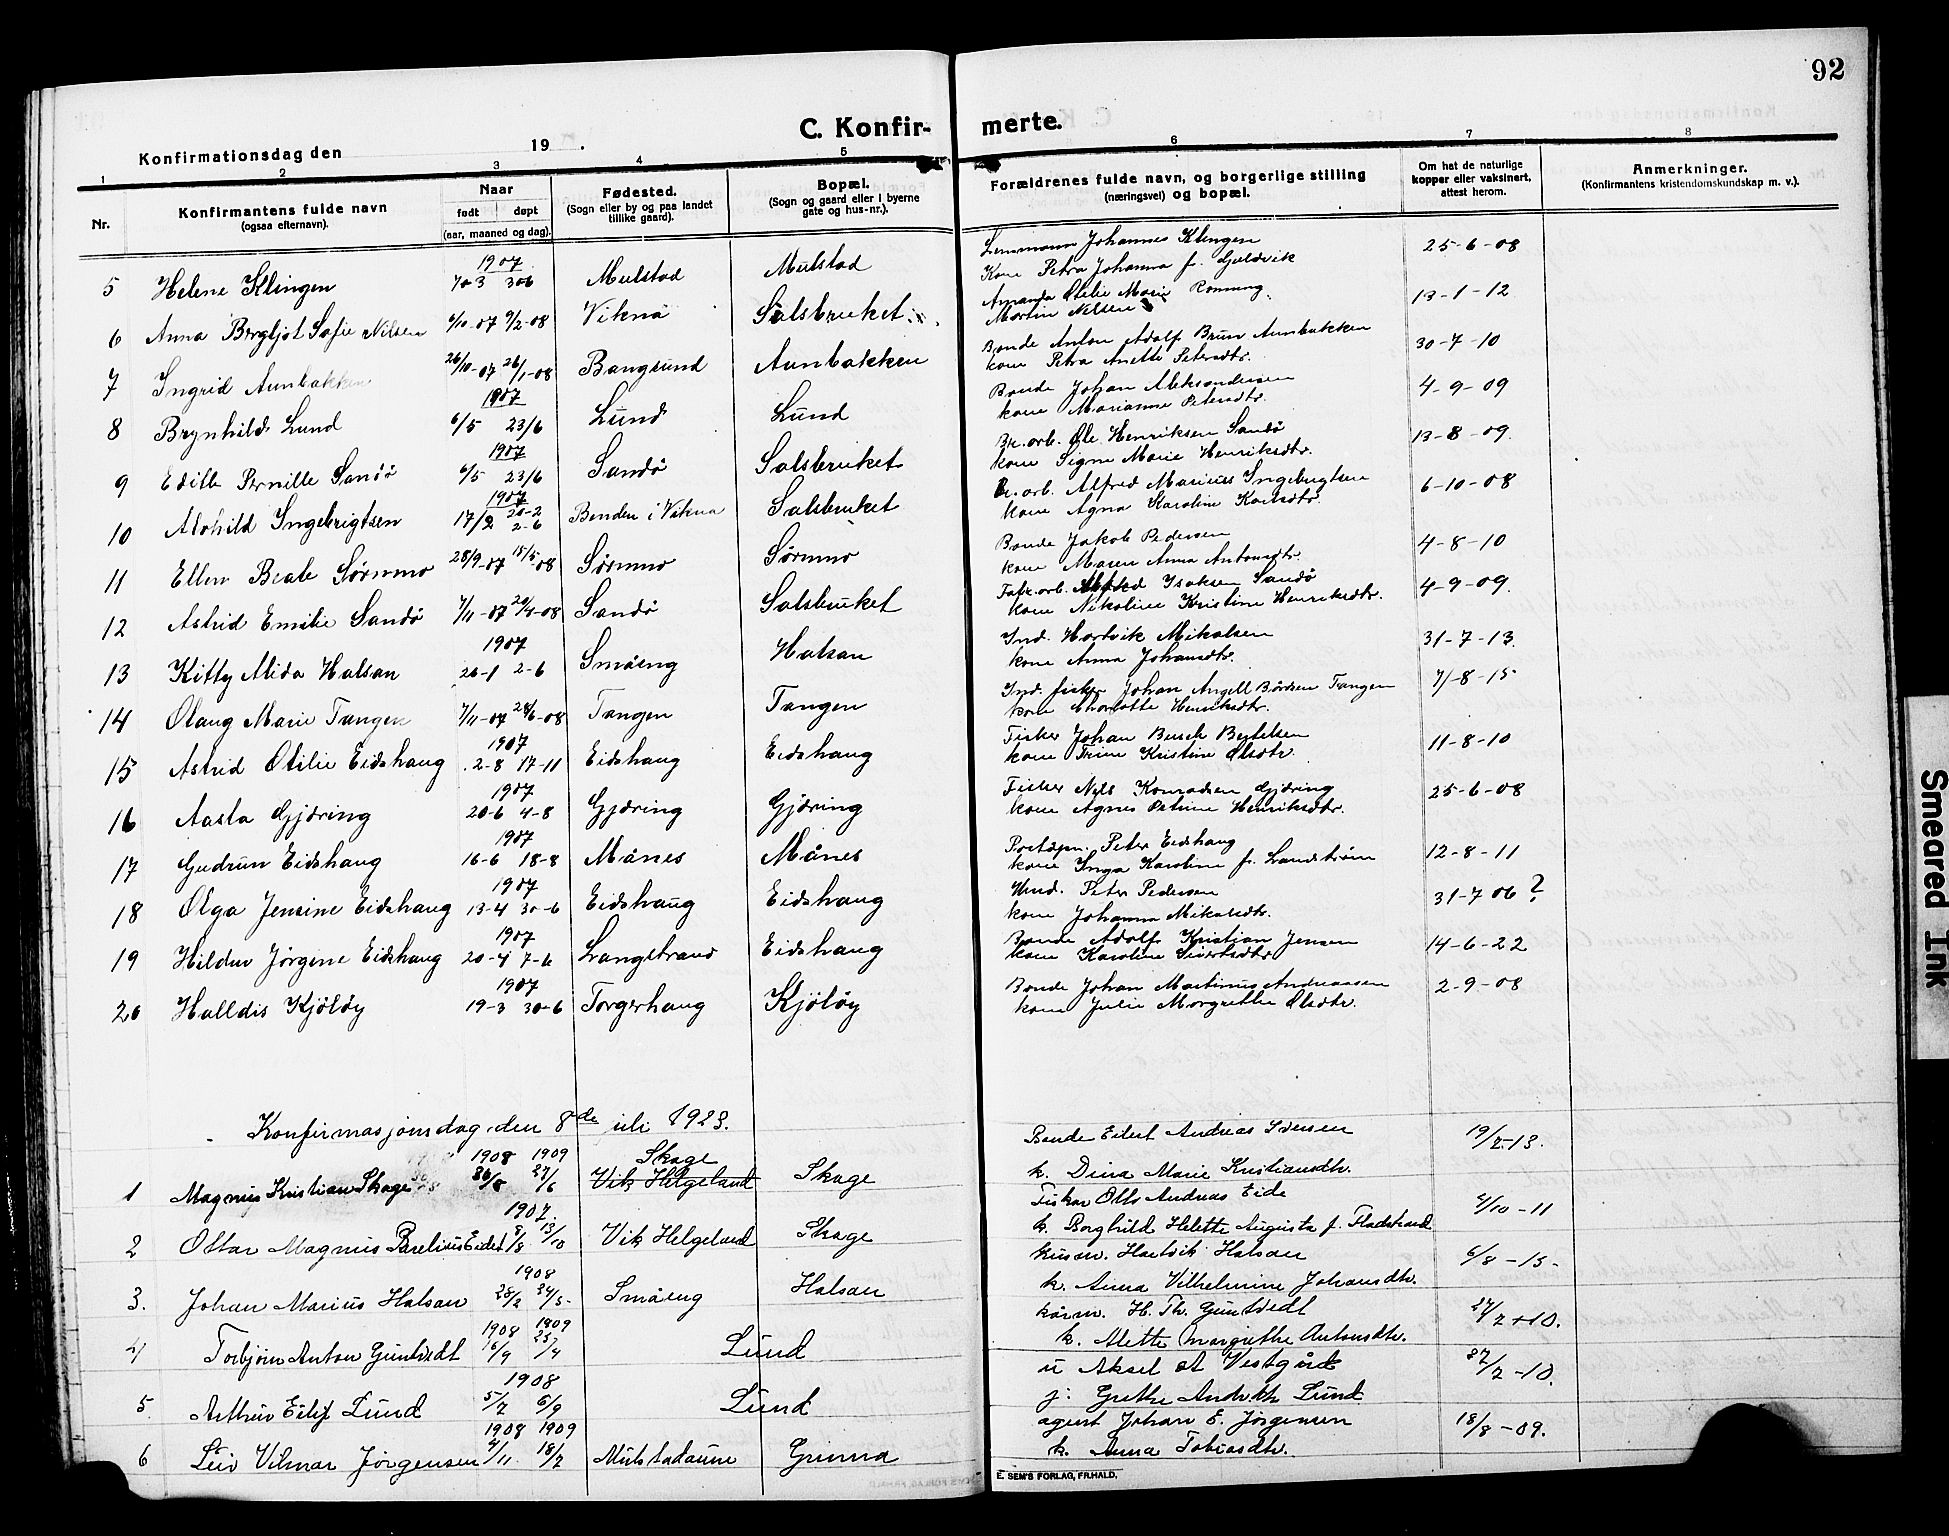 92
C. Konfirmerte.
Konfirmationsdag den 19 .
1 2 3 4 5 6 7 8
Nr.
Konfirmantens fulde navn
(ogsaa efternavn).
Naar
født døpt
(aar, maaned og dag).
Fødested.
(Sogn eller by og paa landet
tillike gaard).
Bopæl.
(Sogn og gaard eller i byerne
gate og hus-nr.).
Forældrenes fulde navn, og borgerlige stilling
(næringsvei) og bopæl.
Om hat de naturlige
kopper eller vaksinert,
attest herom.
Anmerkninger.
(Konfirmantens kristendomskundskap m. v.).
1907
5 Helene Klingen 30-6 Mulstad Mulstad Johannes Klingen 25-6-08
Kone Petra Johanna f.
6 Anna Bergljot Sofie Nilsen 9/2-08 Vikna Salsbruket Amanda Otelie Marie Rønning 13-1-12
Martin Nilsen
7 Ingrid Aunbakken 26/10-07 26/1-08 Bangsund Aunbakken Bonde Anton Adolf Brun Aunbakken 30-7-10
kone Petra Anette Petersdtr.
1907
8 Brynhild Lund 6/5 23/6 Lund Lund Bonde Johan Aleksandersen 4-9-09
kone Marianne Petersdtr.
1907
9 Edith Pernille Sandö 6/5 23/6 Sandö Salsbruket Br.arb. Ole Henriksen Sandö 13-8-09.
kone Signe Marie Henriksdtr.
1907
10 Alvhild Ingebrigtsen 17/2 2-6 i Vikna Salsbruket Br.arb. Alfred Marius Ingebrigtsen 6-10-08
kone Agna Karoline Karlsdtr.
11 Ellen Beate Sørmmo 28/9-07 15/5-08 Sørmmo Sørmmo Bonde Jakob Pedersen 4-8-10
kone Maren Anna Antonsdtr.
12 Astrid Emilie Sandö 7/11-07 20/4-08 Sandö Salsbruket Fabr.arb. Isaksen Sandö 4-9-09.
kone Nikoline Kristine Henriksdtr.
1907
13 Kitty Alida Halsan 26-1 2-6 Småeng Halsan Ind. Hartvik Mikalsen 31-7-13.
kone Anna Johansdtr.
14 Olaug Marie Tangen 7/11-07 28/6-08 Tangen Tangen Ind. fisker Johan Angell Bårdsen Tangen 7/-8-15
kone Charlotte Henriksdtr.
1907
15 Astrid Otilie Eidshaug 2-8 17-11 Eidshaug Eidshaug Fisker Johan Busch Bertelsen 11-8-10
kone Trine Kristine Olsdtr.
1907
16 Aasta Gjæring 20-6 4-8 Gjæring Gjæring Fisker Nils Konradsen Gjæring 25-6-08
kone Agnes Petrine Henriksdtr.
1907
17 Gudrun Eidshaug 16-6 18-8 Månes Månes Postaapn. Peter Eidshaug 12-8-11
kone Inga Karoline f. Landstrøm
1907
18 Olga Jensine Eidshaug 13-4 30-6 Eidshaug Eidshaug Peter Pedersen 31-7 06 ?
kone Johanna Mikalsdtr.
1907
19 Hildur Jørgene Eidshaug 20-4 7-6 Langstrand Eidshaug Bonde Adolf Kristian Jensen 14-6-22
kone Karoline Sivertsdtr
1907
20 Halldis Kjöløy 19-3 30-6 Torgerhaug Kjöløy Bonde Johan Martinus Andreassen 2-9-08
kone Julie Margrethe Olsdtr.
Konfirmasjonsdag den 8de juli 1923.
1908 1909
1 Magnus Kristian Skage 27/6 Skage Vik Helgeland Skage Bonde Eilert Andreas Iversen 19/2-13.
k. Dina Marie Kristiansdtr.
1907.
2 Ottar Magnus Eidet 13/10 Vik Helgeland Skage Fisker Otto Andreas Eide 4/10-11
k. Borghild Helette Augusta f. Fladstrand
1908
3. Johan Marius Halsan 28/2 24/5- Småeng Halsan Husm. Hartvik Halsan 6/8-15-
k. Anna Vilhelmine Johansdtr.
1908 1909
4 Torbjørn Anton Guntvedt 16/9 23/4 Lund H. Th. Guntvedt 27/2+10.
k. Alette Margrethe Antonsdtr.
1908
5. Arthur Eilif Lund 5/7 6/9 Lund u Aksel at Vestgård 27/2-10.
j. Grethe Lund
1908 1909
6 Leiv Vilmar Jørgensen 4/11 18/2 Mulstadaune Grinna agent Johan E. Jørgensen 18/8-09.
k. Anna Tobiasdtr.
E. SEM'S FORLAG, FR.HALD.
Smeared Ink